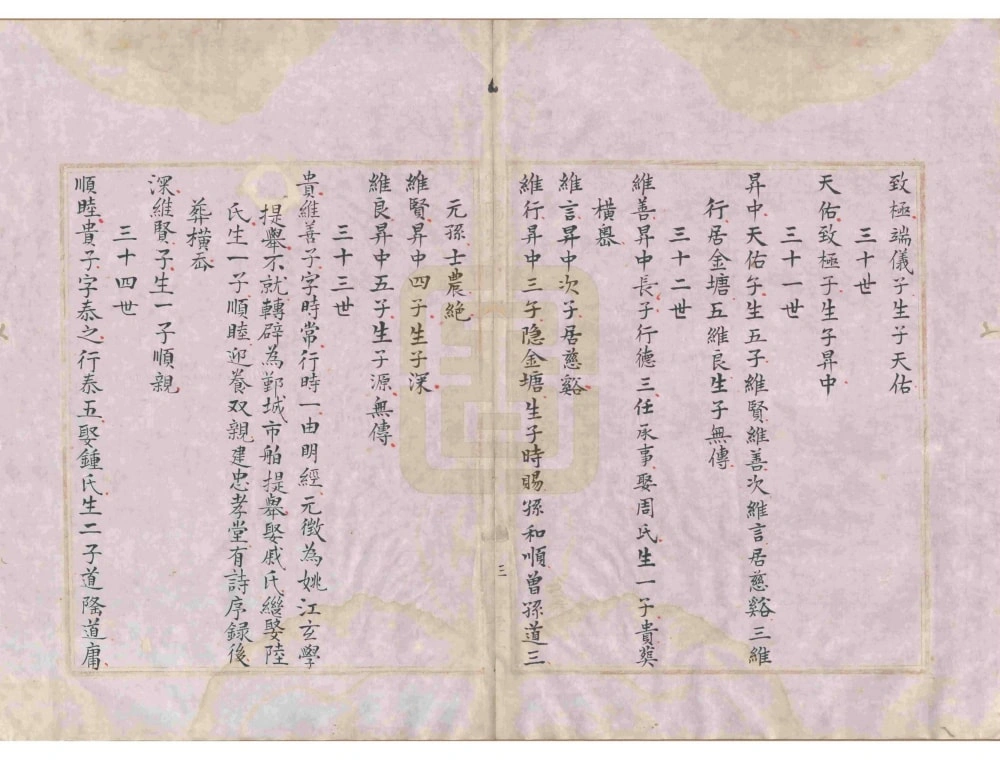 致極端儀子生子天佑
三十世
天佑致極子生子昇中
三十一世
昇中天佑子生五子維賢維善次維言居慈谿三維
行居金塘五維良生子無傳
三十二世
維善昇中長子行德三任承事娶周氏生一子貴葬
橫嶴
維言昇中次子居慈谿
維行昇中三子隐金塘生子時賜孫和順曾孫道三
三
元孫士農絶
維賢昇中四子生子深
維良昇中五子生子源無傳
三十三世
貴維善子字時常行時一由明經元徴為姚江玄學
提舉不就轉辟為鄞城市舶提舉娶戚氏繼娶陸
氏生一子順睦迎養双親建忠孝堂有詩序錄後
葬橫岙
深維賢子生一子順親
三十四世
順睦貴子字泰之行泰五娶鍾氏生二子道隆道庸